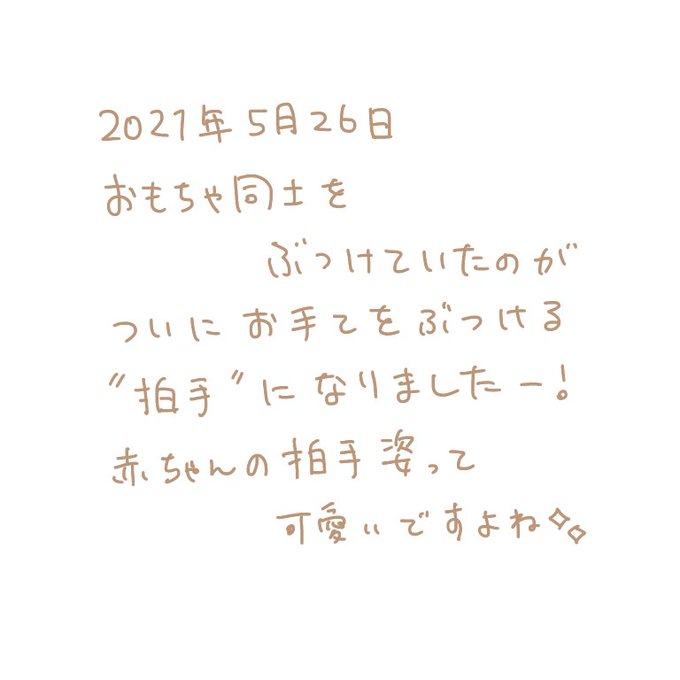 2021年5月26日
おもちゃ同士を
ぶつけていたのが
ついにお手てをぶつける
"拍手"になりましたー!
赤ちゃんの拍手姿って
可愛いですよね✧✧